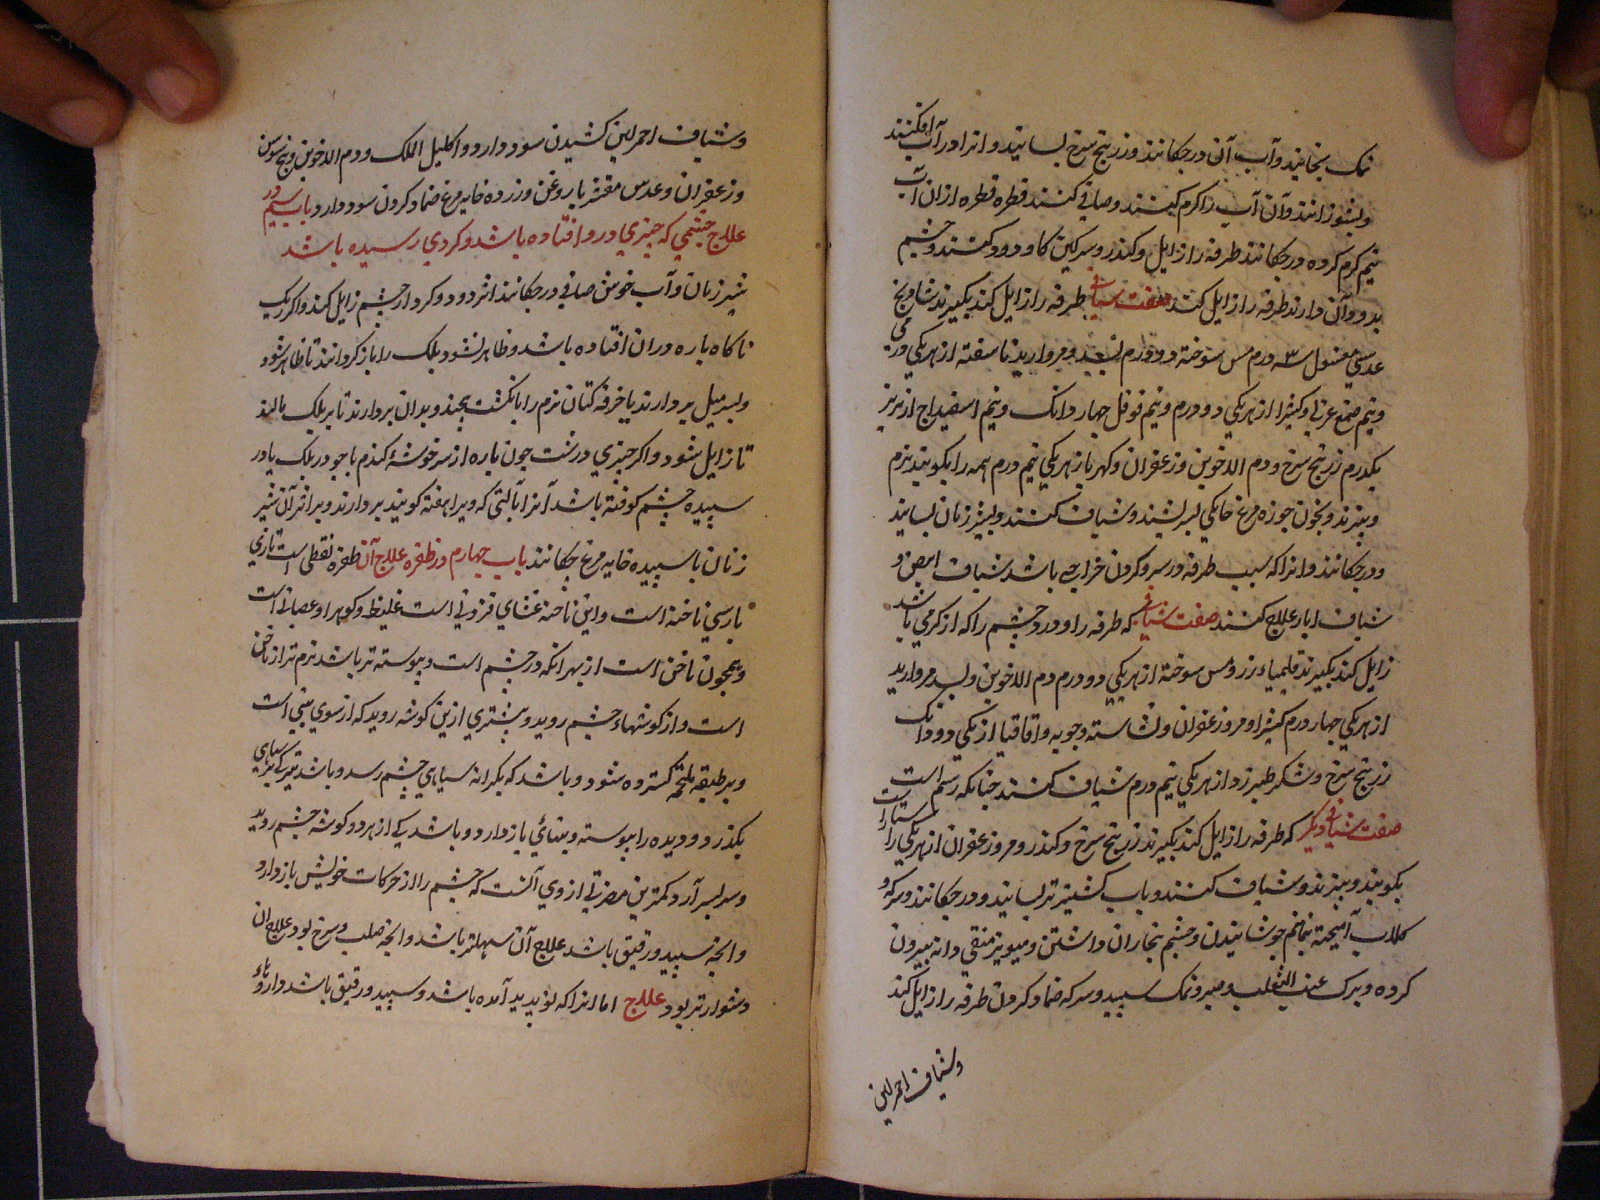 نمک بخایند و آب آن در چکانند و زرنیخ سرخ بسایند و انرا در آب افکنند
و بشورانند و آن آب را کرم کنند و صافی کنند قطره قطره ازان آب
نیم کرم کرده در چکانند طرفه را زایل و کندر و سرکین کاو دود کنند و چشم
بدود آن دارند طرفه را زایل کند صفت شیافی طرفه را زایل کند بکیرند شادنج
عدسی مغسول سه درم مس سوخته دو درم بسد و مروارید ناسفته از هر یکی درمی
و نیم صمغ عربی و کثیرا از هریکی دو درم و نیم فوفل چهار دانک و نیم اسفیداج ارزیز
یکدرم زرنیخ سرخ و دم الاخوین و زعفران و کهربا از هریکی نیم درم همه را بکویند نرم
و ببیزند و بخون جوزه مرغ خانکی بسرشند و شیاف کنند و بشیر زنان بسایند
و در چکانند و انرا که سبب طرفه ورسو کردن خراجی باشد شیاف ابیض و
شیاف ابار علاج کنند صفت شیافی که طرفه را و درد چشم را که از کرمی باشد
زایل کند بکیرند قلیمیاء زر و مس سوخته از هریکی دو درم دم الاخوین و بسد مروارید
از هریکی چهار درم کثیرا و مر و زعفران و نشاسته و جوبه و اقاقیا از یکی دو دانک
زرنیخ سرخ و شکر طبرزد از هریکی نیم درم شیاف کنند جنانکه رسم است
صفت شیافی دیکر که طرفه را زایل کند بکیرند زرنیخ سرخ و کندر و مر و زعفران از هریکی راستاراست
بکویند و ببیزند و شیاف کنند و باب کشنیز تر بسایند و در چکانند و سرکه و
کلاب آمیخته بماتم جوشانیدن و چشم ببخاران داشتن و میویز منقی دانه بیرون
کرده و برک عنب الثعلب و صبر و نمک سپید و سرکه ضماد کردن طرفه را زایل کند
و شیاف احمر لین
و شیاف احمر لین کشیدن سود دارد و اکلیل الملک و دم الاخوین و بیخ سوسن
و زعفران و عدس مقشر با روغن و زرده خایه مرغ ضماد کردن سود دارد باب سیم در
علاج چشمی که چیزی درو افتاده باشد و کردی رسیده باشد
شیر زنان و آب خوش صافی در چکانند اثر دود و کرد از چشم زایل کند و اکر ریک
تا کاه باره دران افتاده باشد و ظاهر نشود پلک را باز کردانند تا ظاهر شود
و بسر میل بردارند یا خرقه کتان نرم را بانکشت بچند و بدان بردارند تا بر پلک مالند
تا زایل شود و اکر چیزی درشت چون باره از سر خوشه کندم یا جو در پلک یا در
سپیده چشم کوفته باشد آنرا بآلتی که ویرا هفته کویند بردارند و بر اثر آن شیر
زنان با سپیده خایه مرغ چکانند باب چهارم در ظفره علاج آن ظفره لفظی است تازی
پارسی ناخنه است و این ناخنه غشای فزونی است غلیظ و کوهر او عصبانی است
و همچون ناخن است از بهر انکه در چشم است و پیوسته تر باشد نرم تر از ناخن
است و از کوشهاء چشم روید و بیشتری ازین کوشه روید که از سوی بینی است
و بر طبقه ملتحمه کسترده شود و باشد که بکرانه سیاهی چشم رسد و باشد نیز که بر سیاهی
بکذرد و دیده را بپوسته و بینائی باز دارد و باشد که از هر دو کوشه چشم روید
و سر بسر آرد و کمترین مضرتی از وی آنست که چشم را از حرکات خویش باز دارد
و انچه سپید و رقیق باشد علاج آن سهلتر باشد و انچه صلب و سرخ بود علاج ان
دشوارتر بود علاج اما انرا که نو پدید آمده باشد و سپید و رقیق باشد داروهاء